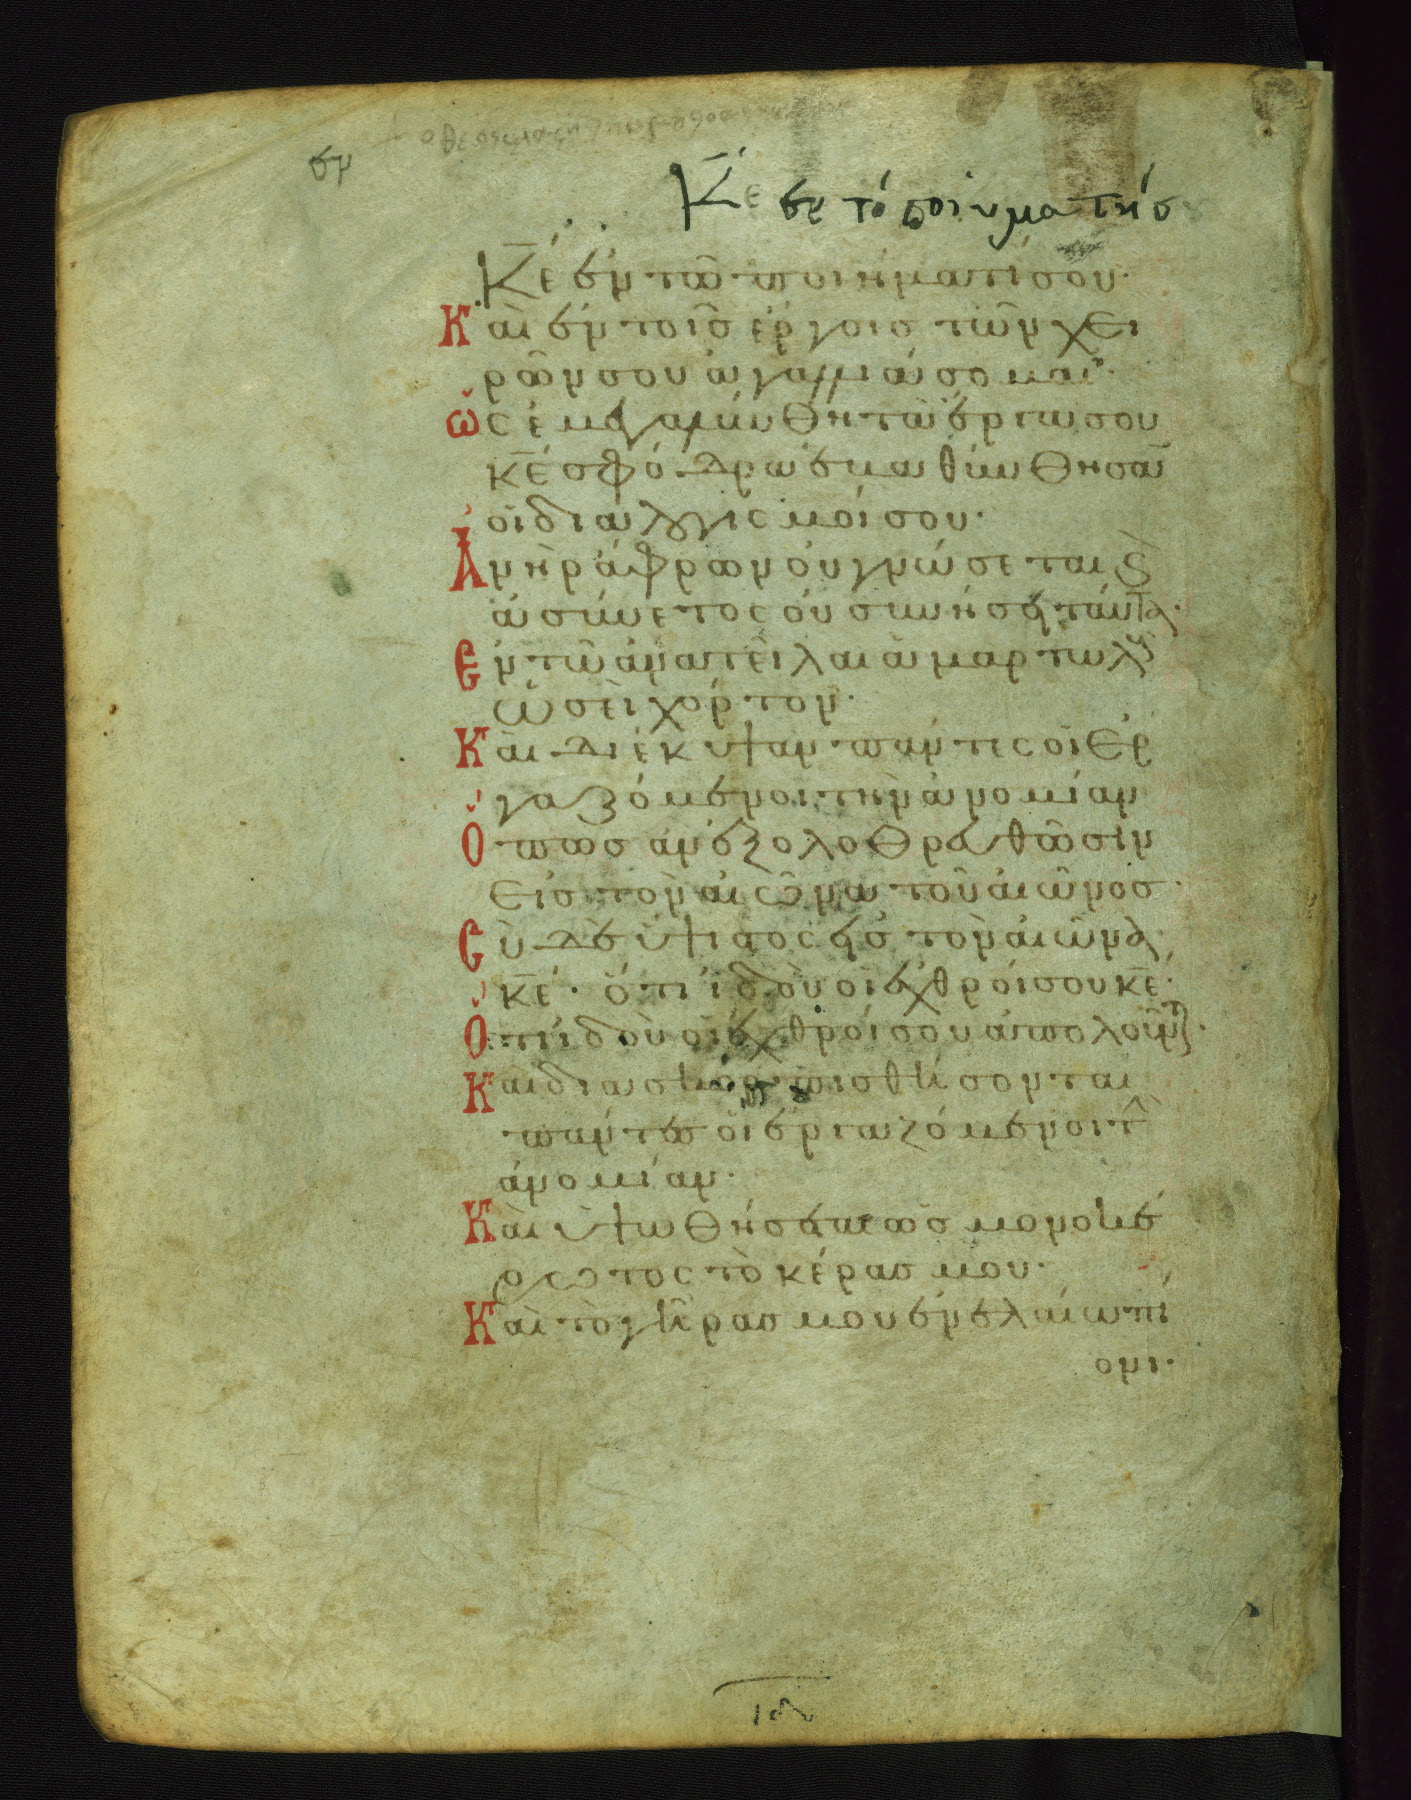 εν
Κε εν το ποιυματησ
Κ̅ε̅ ἐν τῶ ποιήματί σου·
Καὶ ἐν τοῖσ ἔργοισ τῶν χει
ρῶν σου ἀγαλλιάσομαι·
Ὡς ἐμεγαλύνθη τὰ ἔργα σου
κ̅ε̅ σφόδρα ἐβαθύνθησαν
οἱ διαλογισμοί σου·
Ἀνὴρ ἄφρων οὐ γνώσεται καὶ
ἀσύνετος οὐ συνήσει ταῦτα·
Ἐν τῶ ἀνατεῖλαι ἁμαρτωλοὺς
ὡσεὶ χόρτον·
Καὶ διέκυψαν πάντες οἱ ἐρ
γαζόμενοι τὴν ἀνομίαν
Ὅπωσ ἂν ἐξολοθρευθῶσιν
εἰσ τὸν αἰῶνα τοῦ αἰῶνοσ·
Σὺ δὲ ὕψιστος εἰσ τὸν αἰῶνα
κ̅ε̅· ὅτι ἰδοὺ οἱ ἐχθροί σου κ̅ε̅·
Ὅτι ἰδοὺ οἱ ἐχθροί σου ἀπολοῦνται·
Καὶ διασκορπισθήσονται
πάντεσ οἱ ἐργαζόμενοι τὴν
ἀνομίαν·
Καὶ ὑψωθήσεται ὡσ μονοκέ
ρωτος τὸ κέρασ μου·
Καὶ τὸ γῆρασ μου ἐν ἐλαίω πί
ονι·